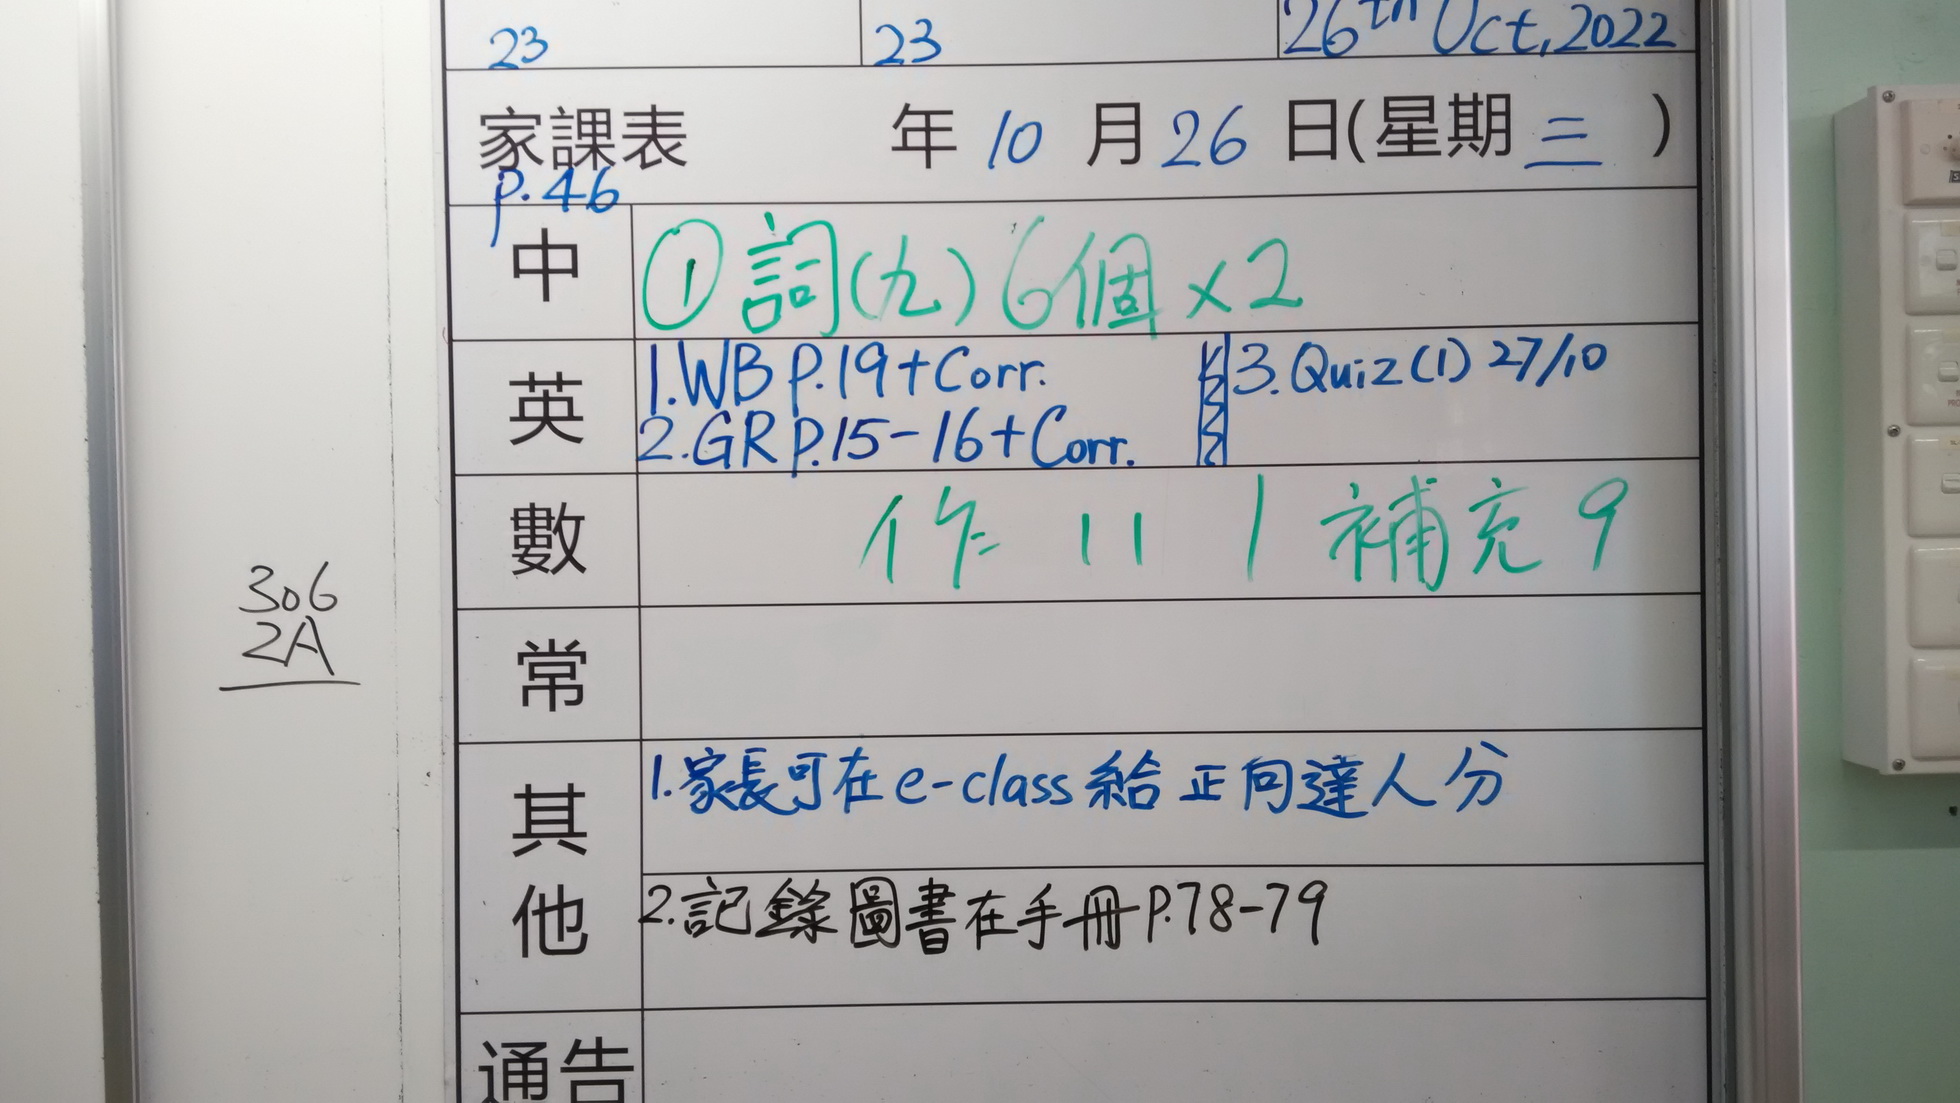 23 23 26th Oct, 2022
家課表 年 10 月 26 日(星期 三 )
p.46
中 ① 詞(九) 6個 x2
英 1.WB P.19+Corr. 3.Quiz(1) 27/10
2.GR P.15-16+Corr.
數 作 11 | 補充 9
306
2A
常
其他 1.家長可在e-class給正向達人分
2.記錄圖書在手冊P.78-79
通告